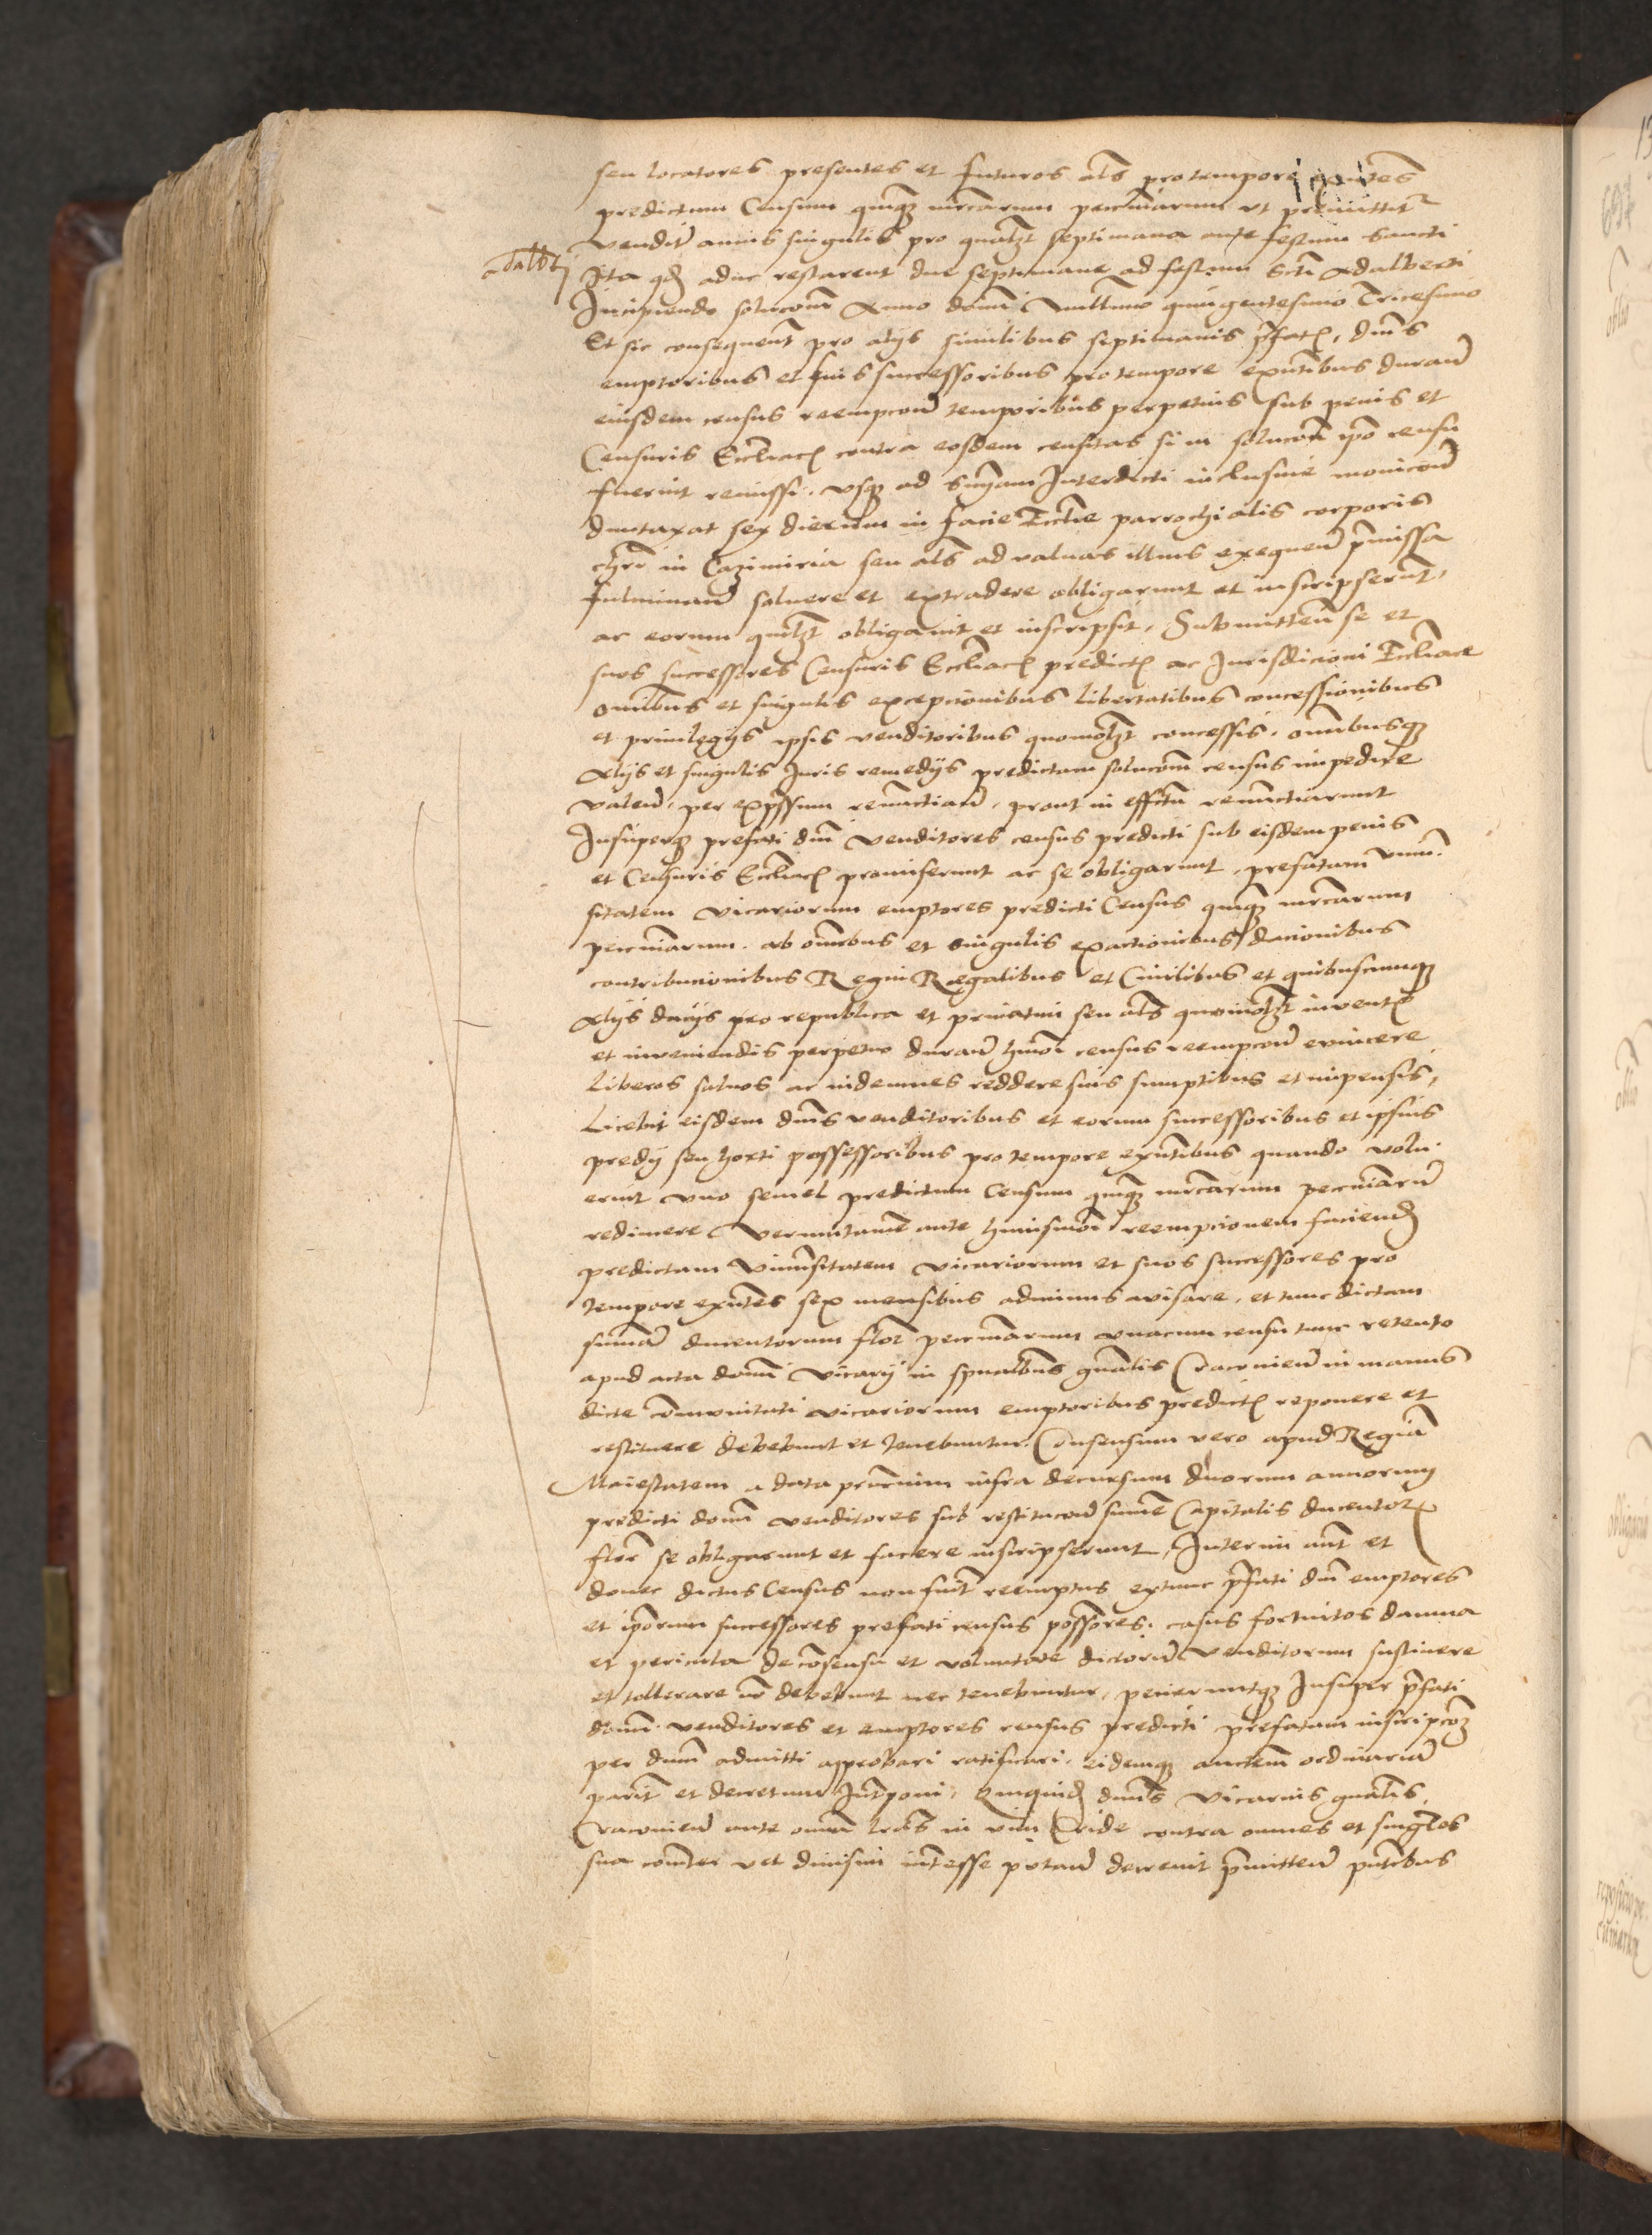 seu locatores presentes et futuros als pro tempore exntes
predictum Censum quinq mrcarum pecuniarum ut premittitr
vendit annis singulis pro qualzt septimana ante festum Sancti
adalbti
Ita qd aduc restarent due septimane ad festum Scti Adalberti
Incipiendo solucom Anno domi Millmo quingentesimo Tricesimo
Et sic consequent pro alijs similibus septimanis pfat, dnis
emptoribus et suis successoribus pro tempore exntibus duran
eiusdem census reempcon temporibus perpetuis sub penis et
Censuris Eccliac contra eosdem censitas si in solucom ipo censu
fuerint remissi, vsq ad Snjam Interdicti inclusiue monicon
duntaxat sex dierum in facie Ecclie parrochialis corporis
chri in Cazimiria seu als ad valuas illius exequen pmissa
fulminan soluere et extradere obligarunt et inscripserunt,
ac eorum quilzt obligauit et inscripsit, Submitten se et
suos successores Censuris Eccliac predict ac Jurisdicioni Eccliace
omibus et singulis excepcionibus libertatibus concessionibus
et priuilegijs ipsis venditoribus quomolzt concessis, omibusq
Alijs et singulis Juris remedijs predictam solucom census impedire
valen, per expssum renuctian, prout in effctu renuctiarunt
Insuperq prefati dni venditores census predicti sub eisdem penis
et Censuris Eccliac promiserunt ac se obligarunt, prefatam vniu
sitatem vicariorum emptores predicti Census quinq mrcarum
pecuniarum, ab omibus et singulis exactionibus dacionibus
contribucionibus Regni Regalibus et Ciuilibus et quibuscunq
Alijs dacijs pro republica et priuatim seu als quomolzt inuent
et inueniendis perpetuo duran hmoi census reempcon euincere
Liberos saluos ac indemnes reddere suis sumptibus et impensis,
Licebit eisdem dnis venditoribus et eorum successoribus et ipsius
predij seu horti possessoribus pro tempore exntibus quando volu
erint vno semel predictum Censum quinq mrcarum pecuniaru
redimere Veruntame ante huiusmoi reempcionem faciend
predictam Vniuersitatem vicariorum et suos successores pro
tempore exntes sex mensibus adminus auisare, et tunc dictam
summa ducentorum flor pecuniarum vnacum censu tunc retento
apud acta domi vicarij in spualibus gnalis Cracouien in manus
dicte comunitati vicariorum emptoribus predict reponere et
restituere debebunt et tenebuntur. Consensum vero apud Regiam
Maiestatem a data pntium infra decursum duorum annorum
predicti domi venditores sub restitucon sume Capitalis ducentor
flor se obligarunt et facere inscripserunt, Interim aut et
donec dictus Census non fuit reemptus extunc pfati dni emptores
et iporum successores prefati census possores, casus fortuitos damna
et pericula de consensu et voluntate dictoru venditorum sustinere
et tollerare no debebunt nec tenebuntur, petieruntq Insuper pfati
domi venditores et emptores census predicti prefatam inscripcom
per dnm admitti approbari ratificari, eidemq auctem ordinariam
parit et decretum Intponi, Quiquid dnus Vicarius gnalis
Cracouien ante omia lras in vim Cride contra omnes et singlos
sua coniter vel diuisim intesse putan decreuit pmitten pntibus